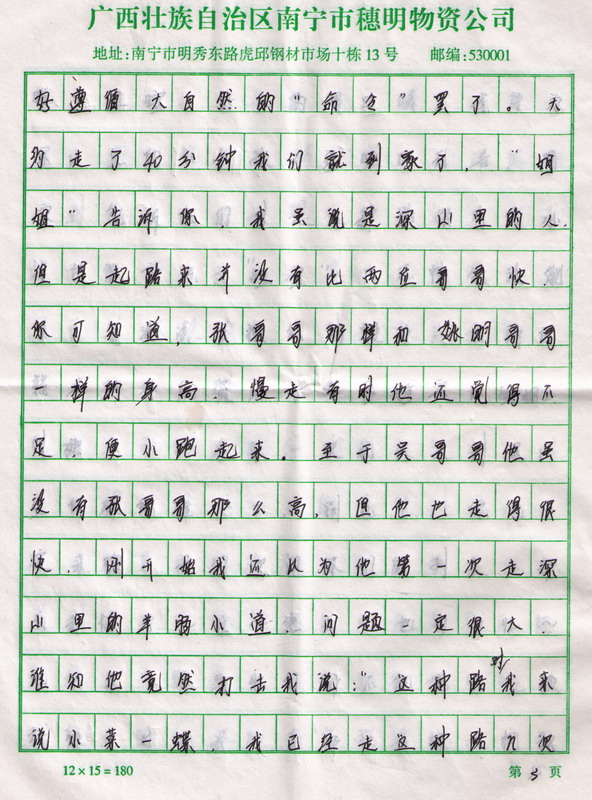 广西壮族自治区南宁市穗明物资公司
地址:南宁市明秀东路虎邱钢材市场十栋13号 邮编:530001
好遵循大自然的“命令”罢了。大
约走了40分钟我们就到家了，“姐
姐”告诉你，我虽说是深山里的人，
但是起路来并没有比两位哥哥快，
你可知道，张哥哥那样和姚明哥哥
一样的身高，慢走有时他还觉得不
足，便小跑起来。至于吴哥哥他虽
没有张哥哥那么高，但他也走得很
快，刚开始我还以为他第一次走深
山里的羊肠小道，问题一定很大，
谁知他竟然打击我说：“这种路对我来
说小菜一蝶，我已经走这种路几次
12×15=180 第 3 页